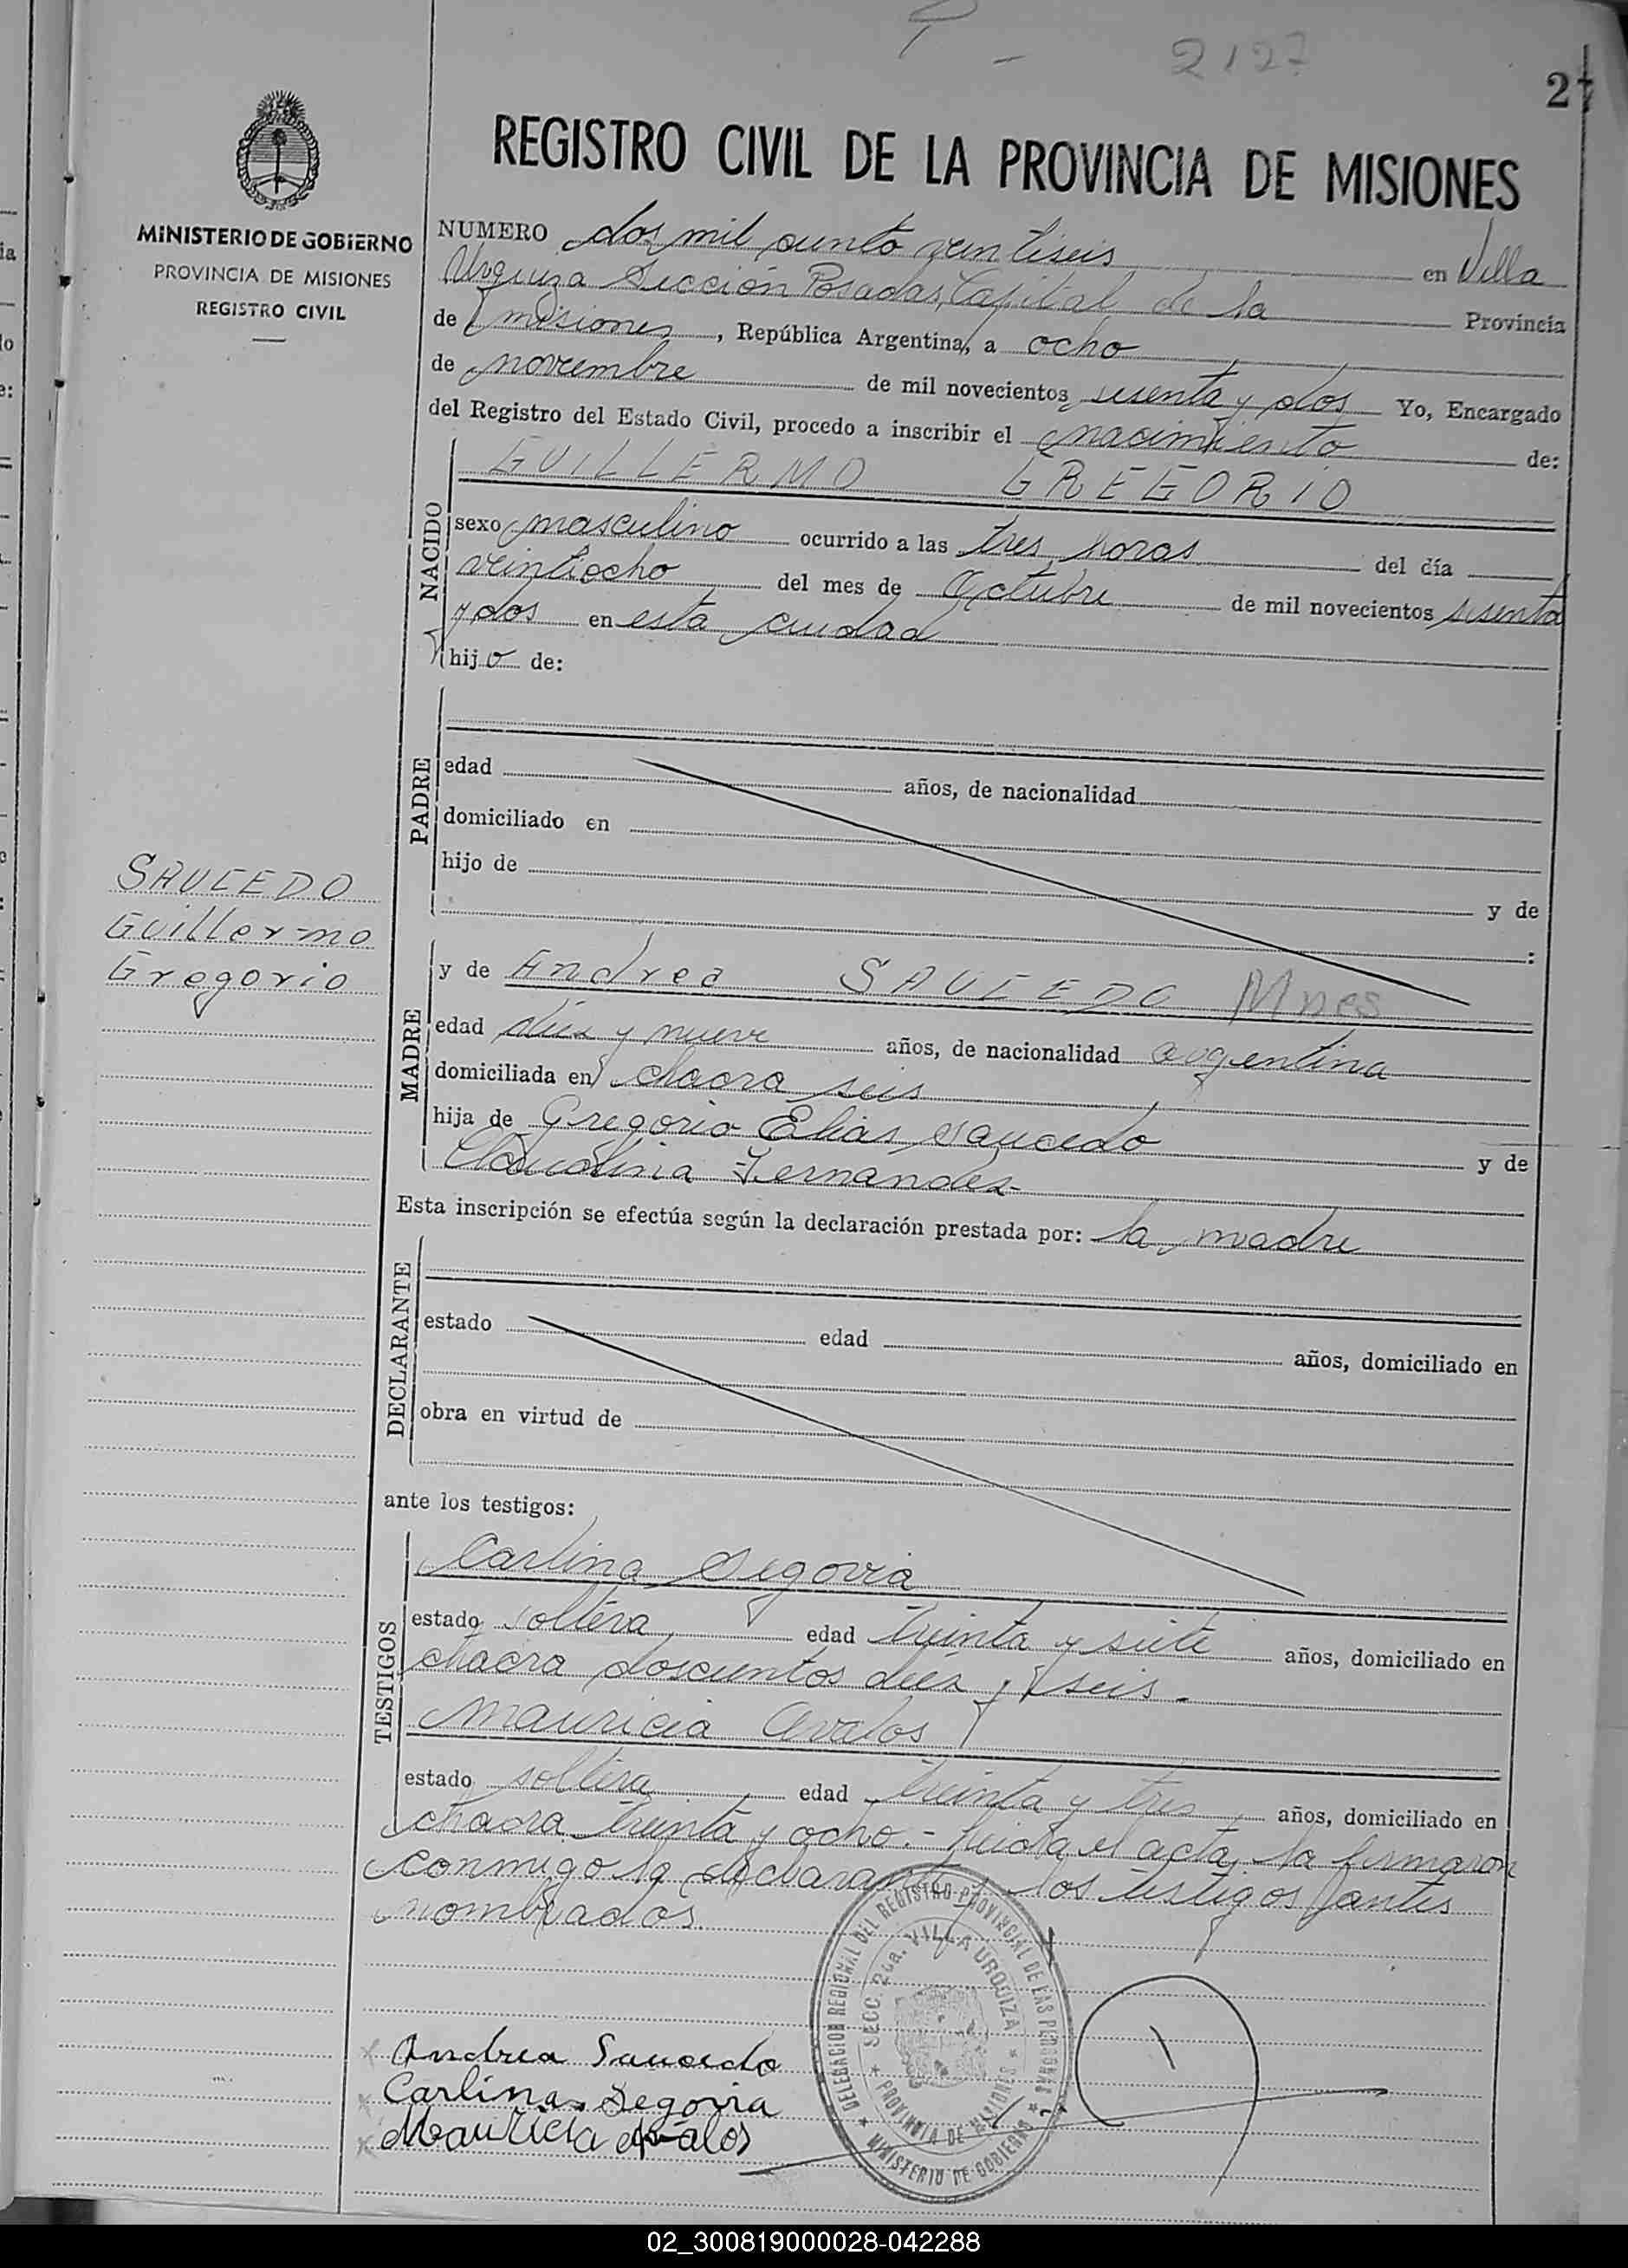 2127
2
REGISTRO CIVIL DE LA PROVINCIA DE MISIONES
MINISTERIO DE GOBIERNO
PROVINCIA DE MISIONES
REGISTRO CIVIL
NUMERO dos mil punto veintiseis en Villa
Urquiza Sección Posadas, Capital de la Provincia
de Misiones, República Argentina, a ocho
de noviembre de mil novecientos sesenta y dos Yo, Encargado
del Registro del Estado Civil, procedo a inscribir el nacimiento de:
NACIDO
GUILLERMO GREGORIO
sexo masculino ocurrido a las tres horas del día
veintiocho del mes de Octubre de mil novecientos sesenta
y dos en esta ciudad
hijo de:
PADRE
edad años, de nacionalidad
domiciliado en
hijo de y de
:
SAUCEDO
Guillermo
Gregorio
MADRE
y de Andrea SAUCEDO Mnes
edad diez y nueve años, de nacionalidad argentina
domiciliada en chacra seis
hija de Gregorio Elias Saucedo y de
Claudina Fernandez
Esta inscripción se efectúa según la declaración prestada por: la madre
DECLARANTE
estado edad años, domiciliado en
obra en virtud de
ante los testigos:
TESTIGOS
Carlina Segovia
estado soltera edad treinta y siete años, domiciliado en
chacra doscientos diez y seis.
Mauricia Avalos
estado soltera edad treinta y tres años, domiciliado en
chacra treinta y ocho.- Leida el acta, la firmaron
conmigo la declarante y los testigos antes
nombrados.
DELEGACION REGIONAL DEL REGISTRO PROVINCIAL DE LAS PERSONAS
SECC. 2da. VILLA URQUIZA
PROVINCIA DE MISIONES
MINISTERIO DE GOBIERNO
Andrea Saucedo
Carlina Segovia
Mauricia Avalos
02_300819000028-042288